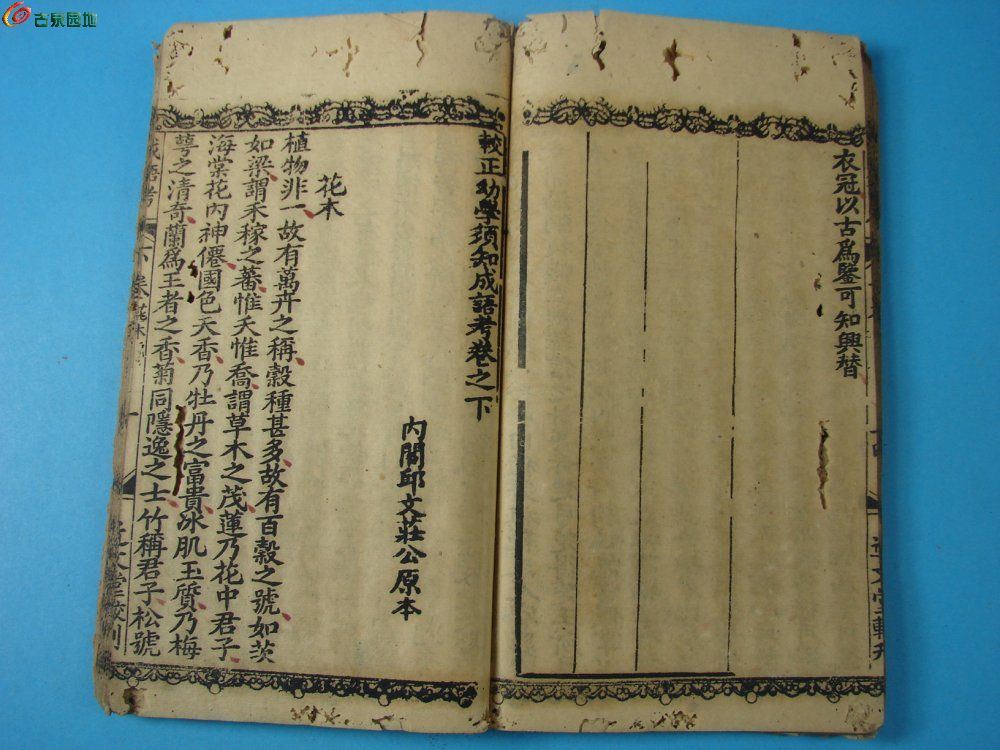 古泉园地
衣冠以古爲鑒可知興替
較正幼學須知成語考卷之下
內閣邱文莊公原本
花木
植物非一故有萬卉之稱穀種甚多故有百穀之號如茨
如梁謂禾稼之蕃惟夭惟喬謂草木之茂蓮乃花中君子
海棠花內神僊國色天香乃牡丹之富貴冰肌玉質乃梅
萼之清奇蘭爲王者之香菊同隱逸之士竹稱君子松號
下卷 花木